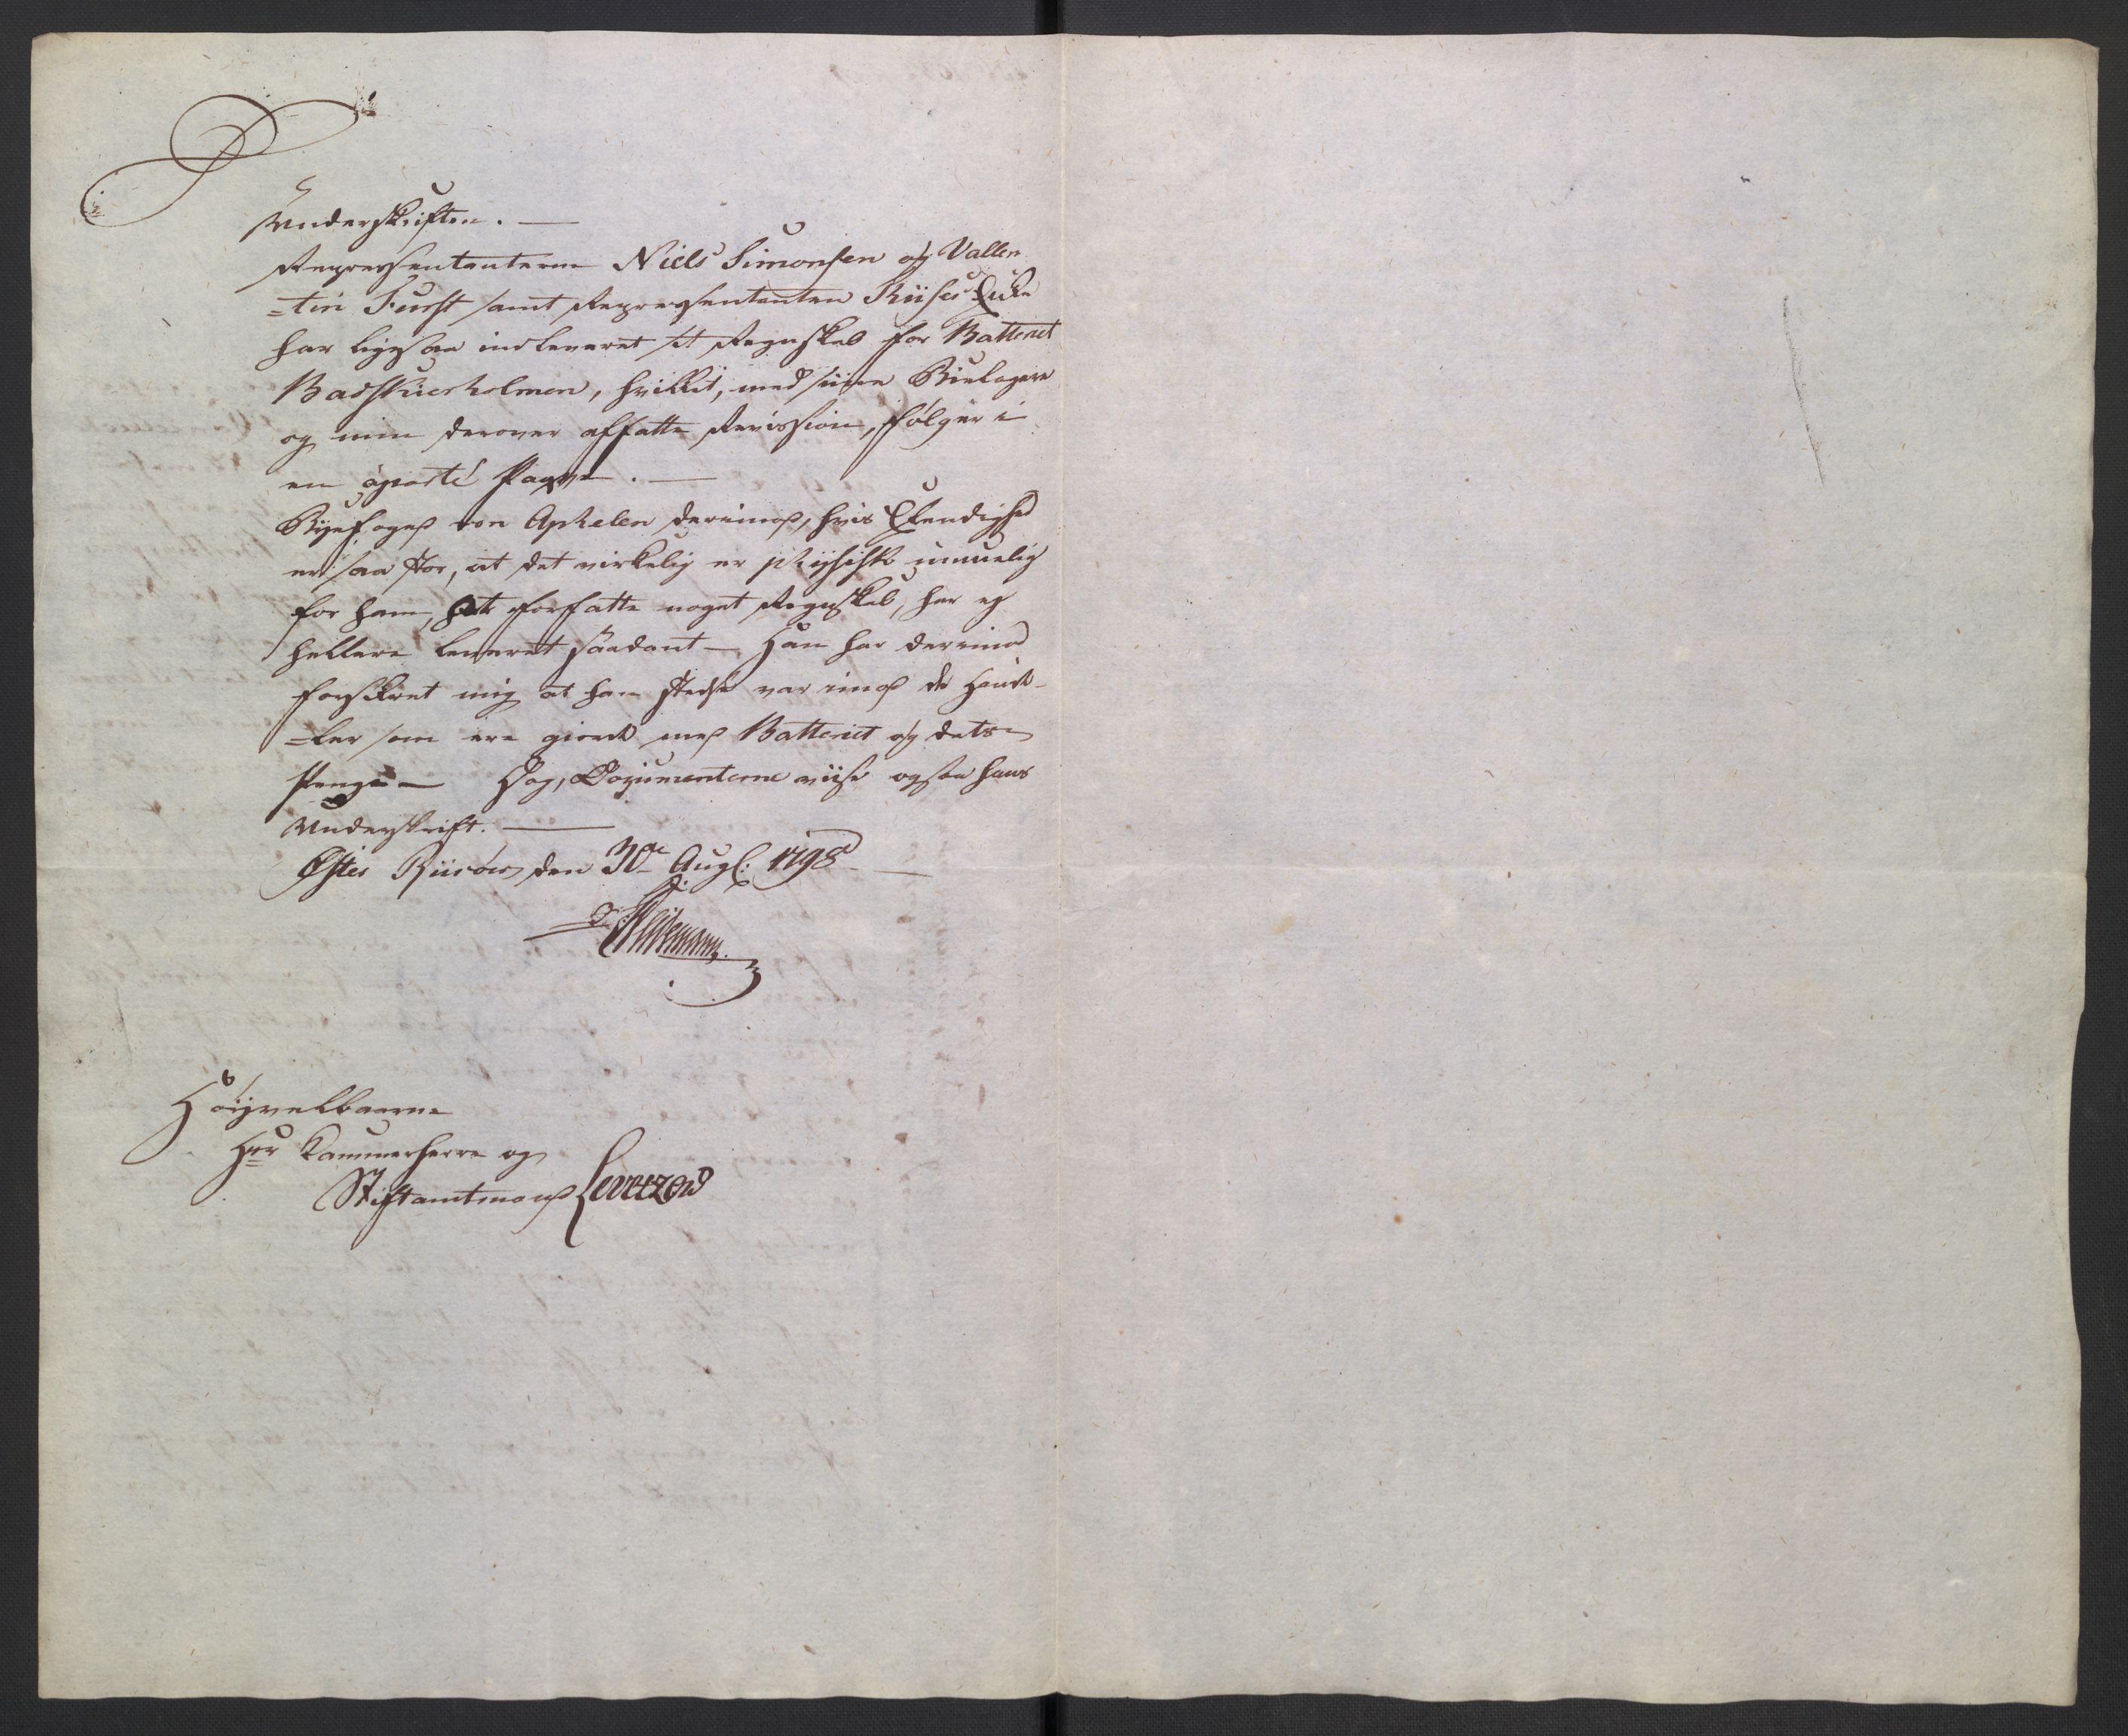 Underskriften. —
Repressentanterne Niels Simonsen og Vallen
=tin Furst samt Repressentanten Riises Enke
har ligesaa indleveret sit Regnskab for Batteriet
Badskierholmen, hvilket, med siine Bielagere
og min derover affatte Revission, følger i
en áparté Paqve. —
Byefoged von Aphelen derimod, hvis Elendighed
er saa stor, at det virkelig er phÿsisk umuelig
for ham, at forfatte noget Regnskab, har ej
hellere leveret saadant — Han har derimod
forsikret mig at han stedse var imod de Hand-
=ler som ere giordt med Batteriet og dets
Penge — Dog, Documenterne viise ogsaa hans
Underskrift. —
Øster Riisøer den 30te Augs: 1798 —
Høÿvelbaarne
Hrr Kammerherre og
Stiftamtmand Levetzow